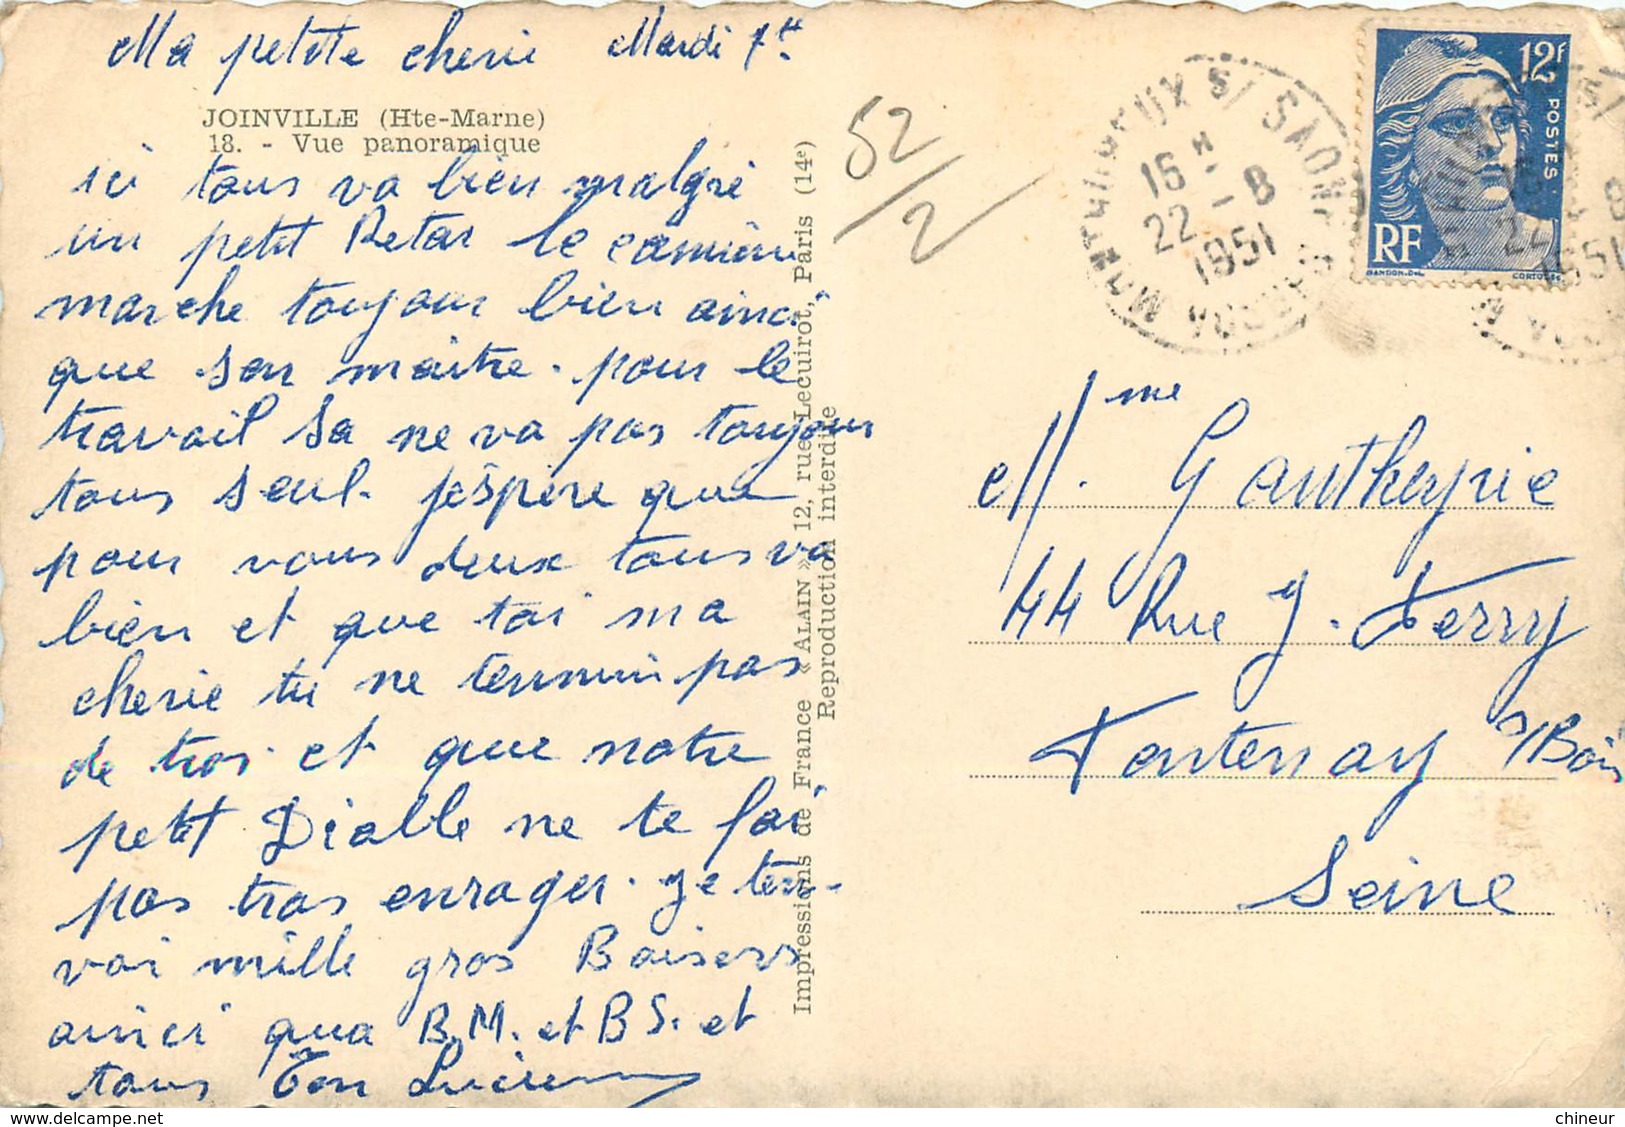 Ma petite cherie Mardi
JOINVILLE (Hte-Marne)
18. - Vue panoramique
ici tous va bien malgré
un petit Retar le camion
marche toujour bien ainci
que son maitre. pour le
travail sa ne va pas toujour
tous seul. j'éspère que
pour vous deux tous va
bien et que toi ma
cherie tu ne pas
de trop et que notre
petit Diable ne te fai
pas trop enrager. je ten-
voi mille gros Baisers
ainci qua B.M. et B S. et
tous Ton Lucien
Impressions de France « ALAIN » 12, rue Lecuirot, Paris (14e)
Reproduction interdite
52/2
S/ SAONE
16 H
22 - 8
1951
12F
POSTES
RF
GANDON.DEL.
M/me G
44 Rue J. Ferry
Fontenay s/Bois
Seine
chineur